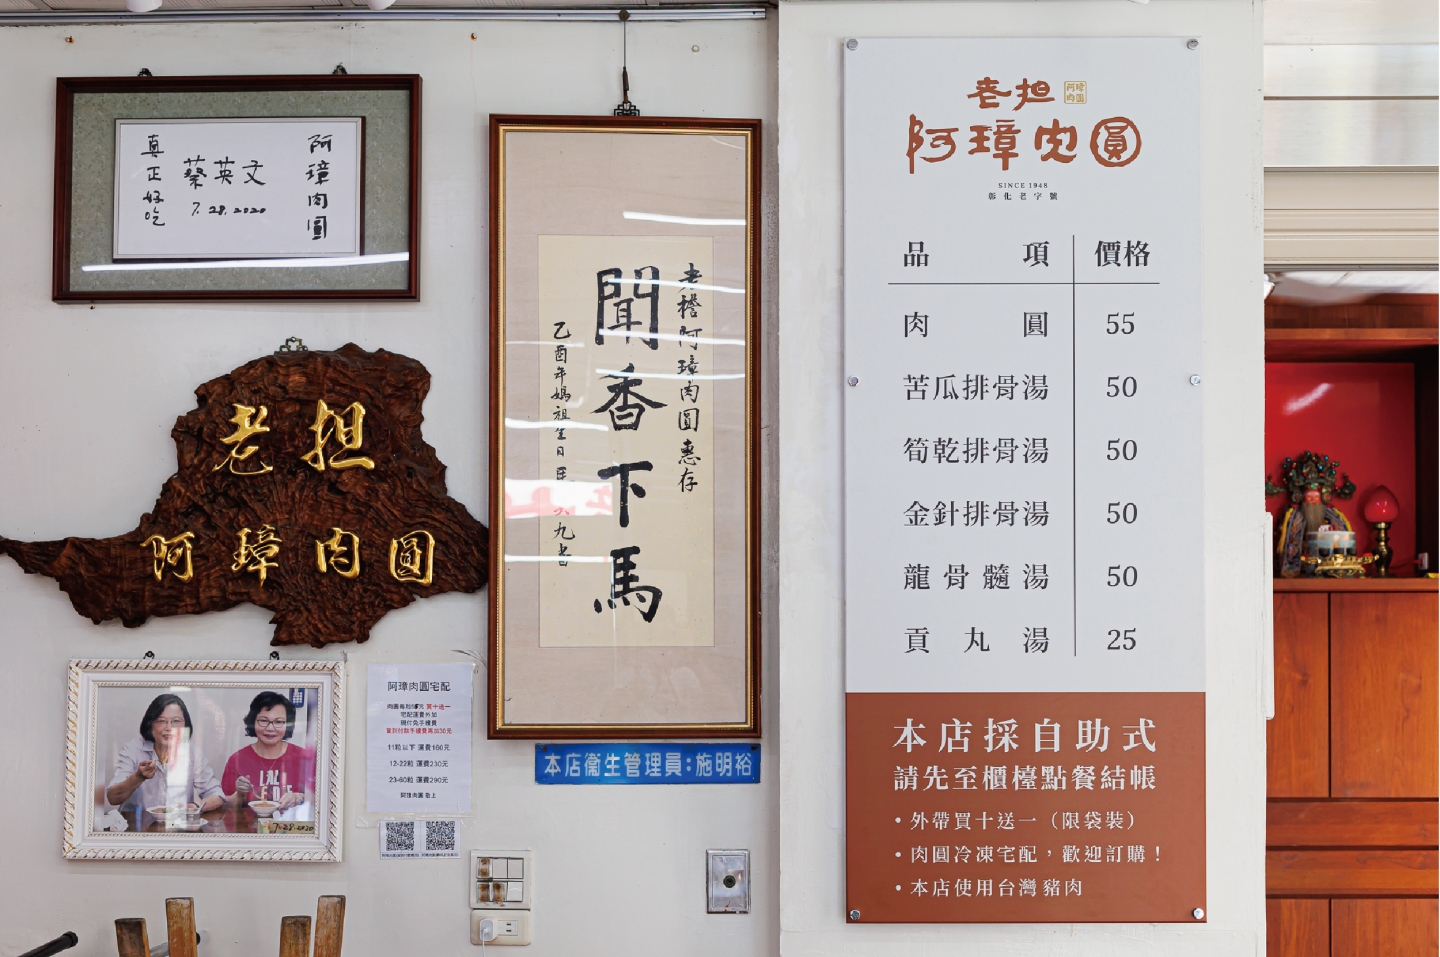 阿璋肉圓
蔡英文
7.28.2020
真正好吃
老担
阿璋肉圓
老檐阿璋肉圓惠存
聞香下馬
乙酉年媽祖生日
九書
7.28.2020
阿璋肉圓宅配
買十送一
宅配運費外加
11粒以下 運費160元
12-22粒 運費230元
23-60粒 運費290元
阿璋肉圓 敬上
本店衛生管理員:施明裕
老担
阿璋肉圓
阿璋肉圓
SINCE 1948
彰化老字號
品項 價格
肉圓 55
苦瓜排骨湯 50
筍乾排骨湯 50
金針排骨湯 50
龍骨髓湯 50
貢丸湯 25
本店採自助式
請先至櫃檯點餐結帳
•外帶買十送一（限袋裝）
•肉圓冷凍宅配，歡迎訂購！
•本店使用台灣豬肉